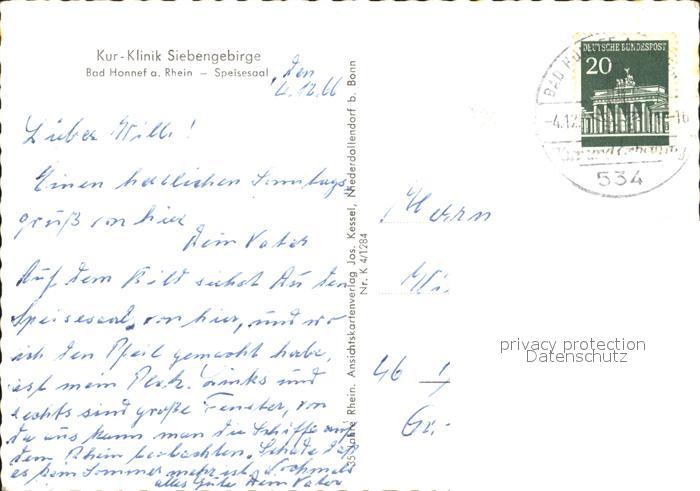 Kur-Klinik Siebengebirge
Bad Honnef a. Rhein – Speisesaal
, den
4.12.66
Lieber Willi!
Einen herzlichen Sonntags-
gruß von hier
Dein Vater
Auf dem Bild siehst Du den
Speisesaal, von hier, und wo
ich den Pfeil gemacht habe,
ist mein Platz. Links und
rechts sind große Fenster, von
da aus kann man die Schiffe auf
dem Rhein beobachten. Schade daß
es kein Sommer mehr ist. Nochmals
alles Gute Dein Vater
35 Jahre Rhein. Ansichtskartenverlag Jos. Kessel, Niederdollendorf b. Bonn
Nr. K 4/1284
DEUTSCHE BUNDESPOST
20
BAD HONNEF
-4.12.
-16
534
Herrn
Wi
46
privacy protection
Datenschutz